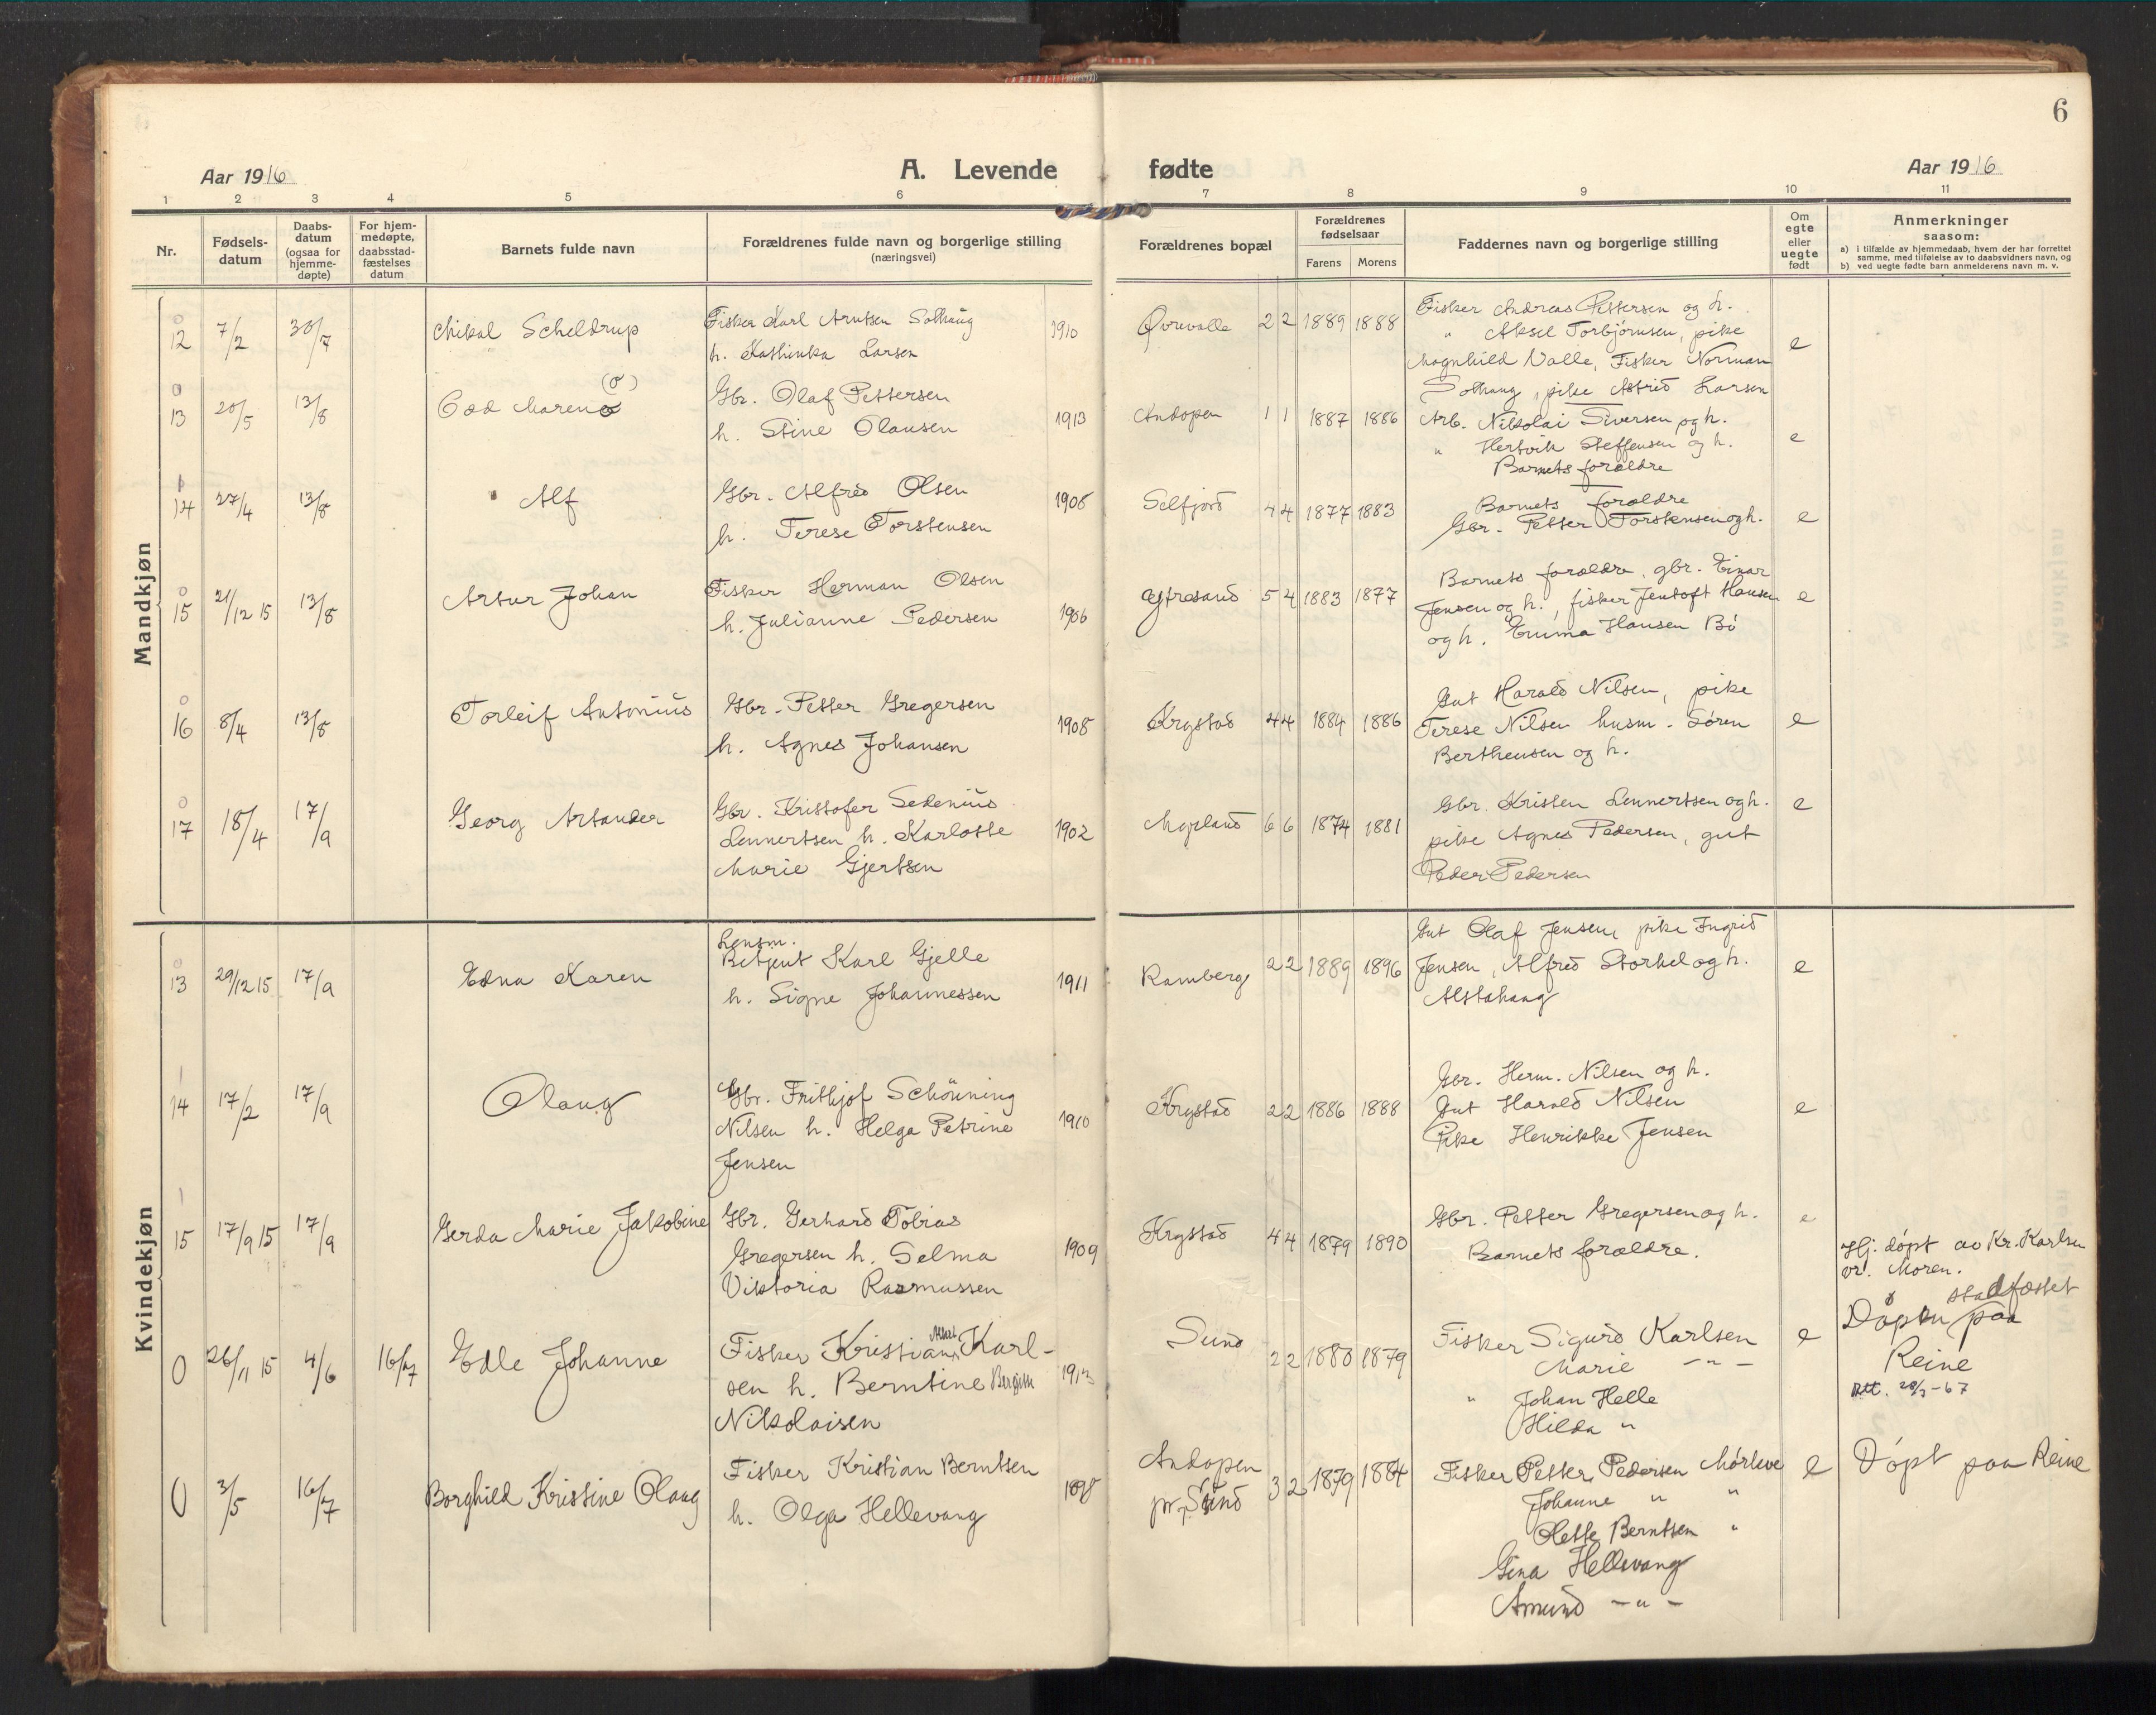 6
Aar 1916
A. Levende fødte
Aar 1916
1 2 3 4 5 6 7 8 9 10 11
Nr.
Fødsels-
datum
Daabs-
datum
(ogsaa for
hjemme-
døpte)
For hjem-
medøpte,
daabsstad-
fæstelses
datum
Barnets fulde navn
Forældrenes fulde navn og borgerlige stilling
(næringsvei)
Forældrenes bopæl
Forældrenes
fødselsaar
Farens
Morens
Faddernes navn og borgerlige stilling
Om
egte
eller
uegte
født
Anmerkninger
saasom:
a) i tilfælde av hjemmedaab, hvem der har forrettet
samme, med tilføielse av to daabsvidners navn, og
b) ved uegte fødte barn anmelderens navn m. v.
Mandkjøn
12 7/2 30/7
Mikal Scheldrup
Fisker Karl Arntsen Solhaug
h. Kathinka Larsen
1910
Övrevalle 2 2 1889 1888
Fisker Andreas Pettersen og h.
" Aksel Torbjörnsen, pike
Magnhild Valle, Fisker Norman
Solhaug, pike Astrid Larsen
e
13 20/5 13/8
(o)
Gbr. Olaf Pettersen
h. Stine Olausen
1913
Andopen 1 1 1887 1886
Arb. Nikolai Siversen og h.
" Hertvik Steffensen og h.
Barnets forældre
e
14 27/4 13/8
Alf
Gbr. Alfred Olsen
h. Terese Torstensen
1905
Selfjord 4 4 1877 1883
Barnets forældre
Gbr. Petter Torstensen og h.
e
15 21/12 15 13/8
Artur Johan
Fisker Herman Olsen
h. Julianne Pedersen
1906
Ytresand 5 4 1883 1877
Barnets forældre, gbr. Einar
Jensen og h., fisker Jentoft Hansen
og h. Emma Hansen Bö
e
16 8/4 13/8
Torleif Antonius
Gbr. Petter Gregersen
h. Agnes Johansen
1908
Krystad 4 4 1884 1886
Gut Harald Nilsen, pike
Terese Nilsen husm. Sören
Bertheusen og h.
e
17 18/4 17/9
Georg Artander
Gbr. Kristofer Sedenius
Lennertsen h. Karlotte
Marie Gjertsen
1902
Moland 6 6 1874 1881
Gbr. Kristen Lennertsen og h.
pike Agnes Pedersen, gut
Peder Pedersen
e
Kvindekjøn
13 29/12 15 17/9
Edna Karen
Lensm.
Betjent Karl Gjelle
h. Signe Johannessen
1911
Ramberg 2 2 1889 1896
Gut Olaf Jensen, pike Ingrid
Jensen, Alfred Storkel og h.
Alstahaug
e
14 17/2 17/9
Olaug
Gbr. Frithjof Schönning
Nilsen h. Helga Petrine
Jensen
1910
Krystad 2 2 1886 1888
Gbr. Herm. Nilsen og h.
Gut Harald Nilsen
Pike Henrikke Jensen
e
15 17/9 15 17/9
Gerda Marie Jakobine
Gbr. Gerhard Tobias
Gregersen h. Selma
Viktoria Rasmussen
1909
Krystad 4 4 1879 1890
Gbr. Petter Gregersen og h.
Barnets forældre.
e
Hj. döpt av Kr. Karlsen
Moren.
0 26/11 15 4/6 16/7
Edle Johanne
Fisker Kristian Karl-
sen h. Berntine
Nikolaisen
Sund 2 2 1880 1879
Fisker Sigurd Karlsen
Marie - " -
" Johan Helle
Hilda "
e
stadfæstet
paa
Reine
0 3/5 16/7
Borghild Kristine Olaug
Fisker Kristian Berntsen
h. Olga Hellevang
Andopen
pr. Sund
3 2 1879 1884
Fisker Petter Pedersen
Johanne " "
Olette Berntsen "
Gina Hellevang
Amund - " -
e
Döpt paa Reine